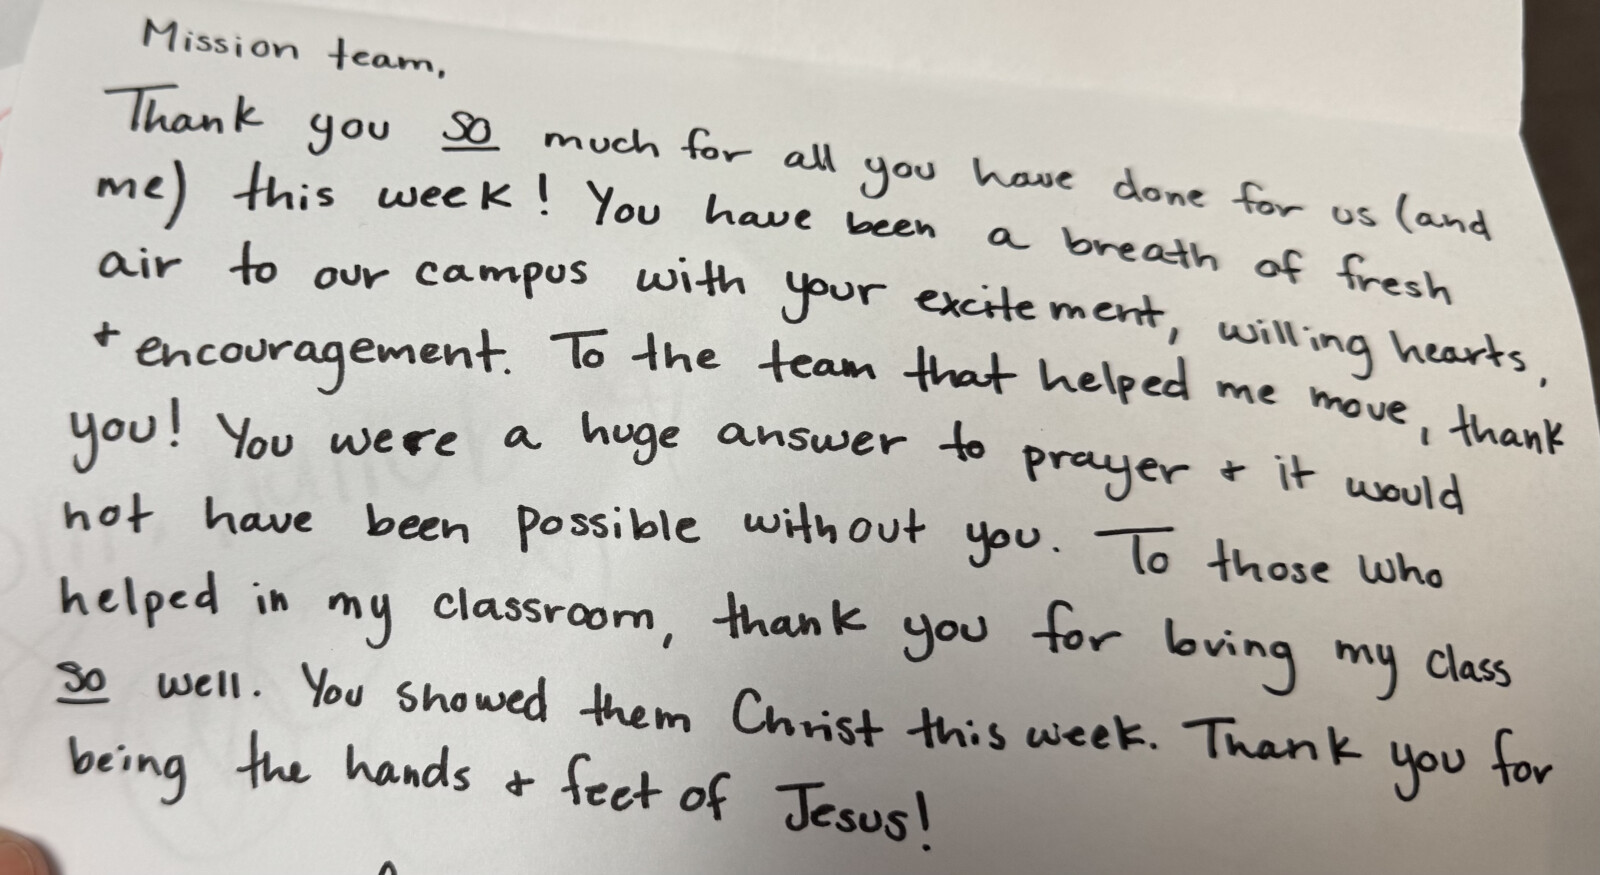 Mission team,
Thank you so much for all you have done for us (and
me) this week! You have been a breath of fresh
air to our campus with your excitement, willing hearts,
+ encouragement. To the team that helped me move, thank
you! You were a huge answer to prayer + it would
not have been possible without you. To those who
helped in my classroom, thank you for loving my class
so well. You showed them Christ this week. Thank you for
being the hands + feet of Jesus!